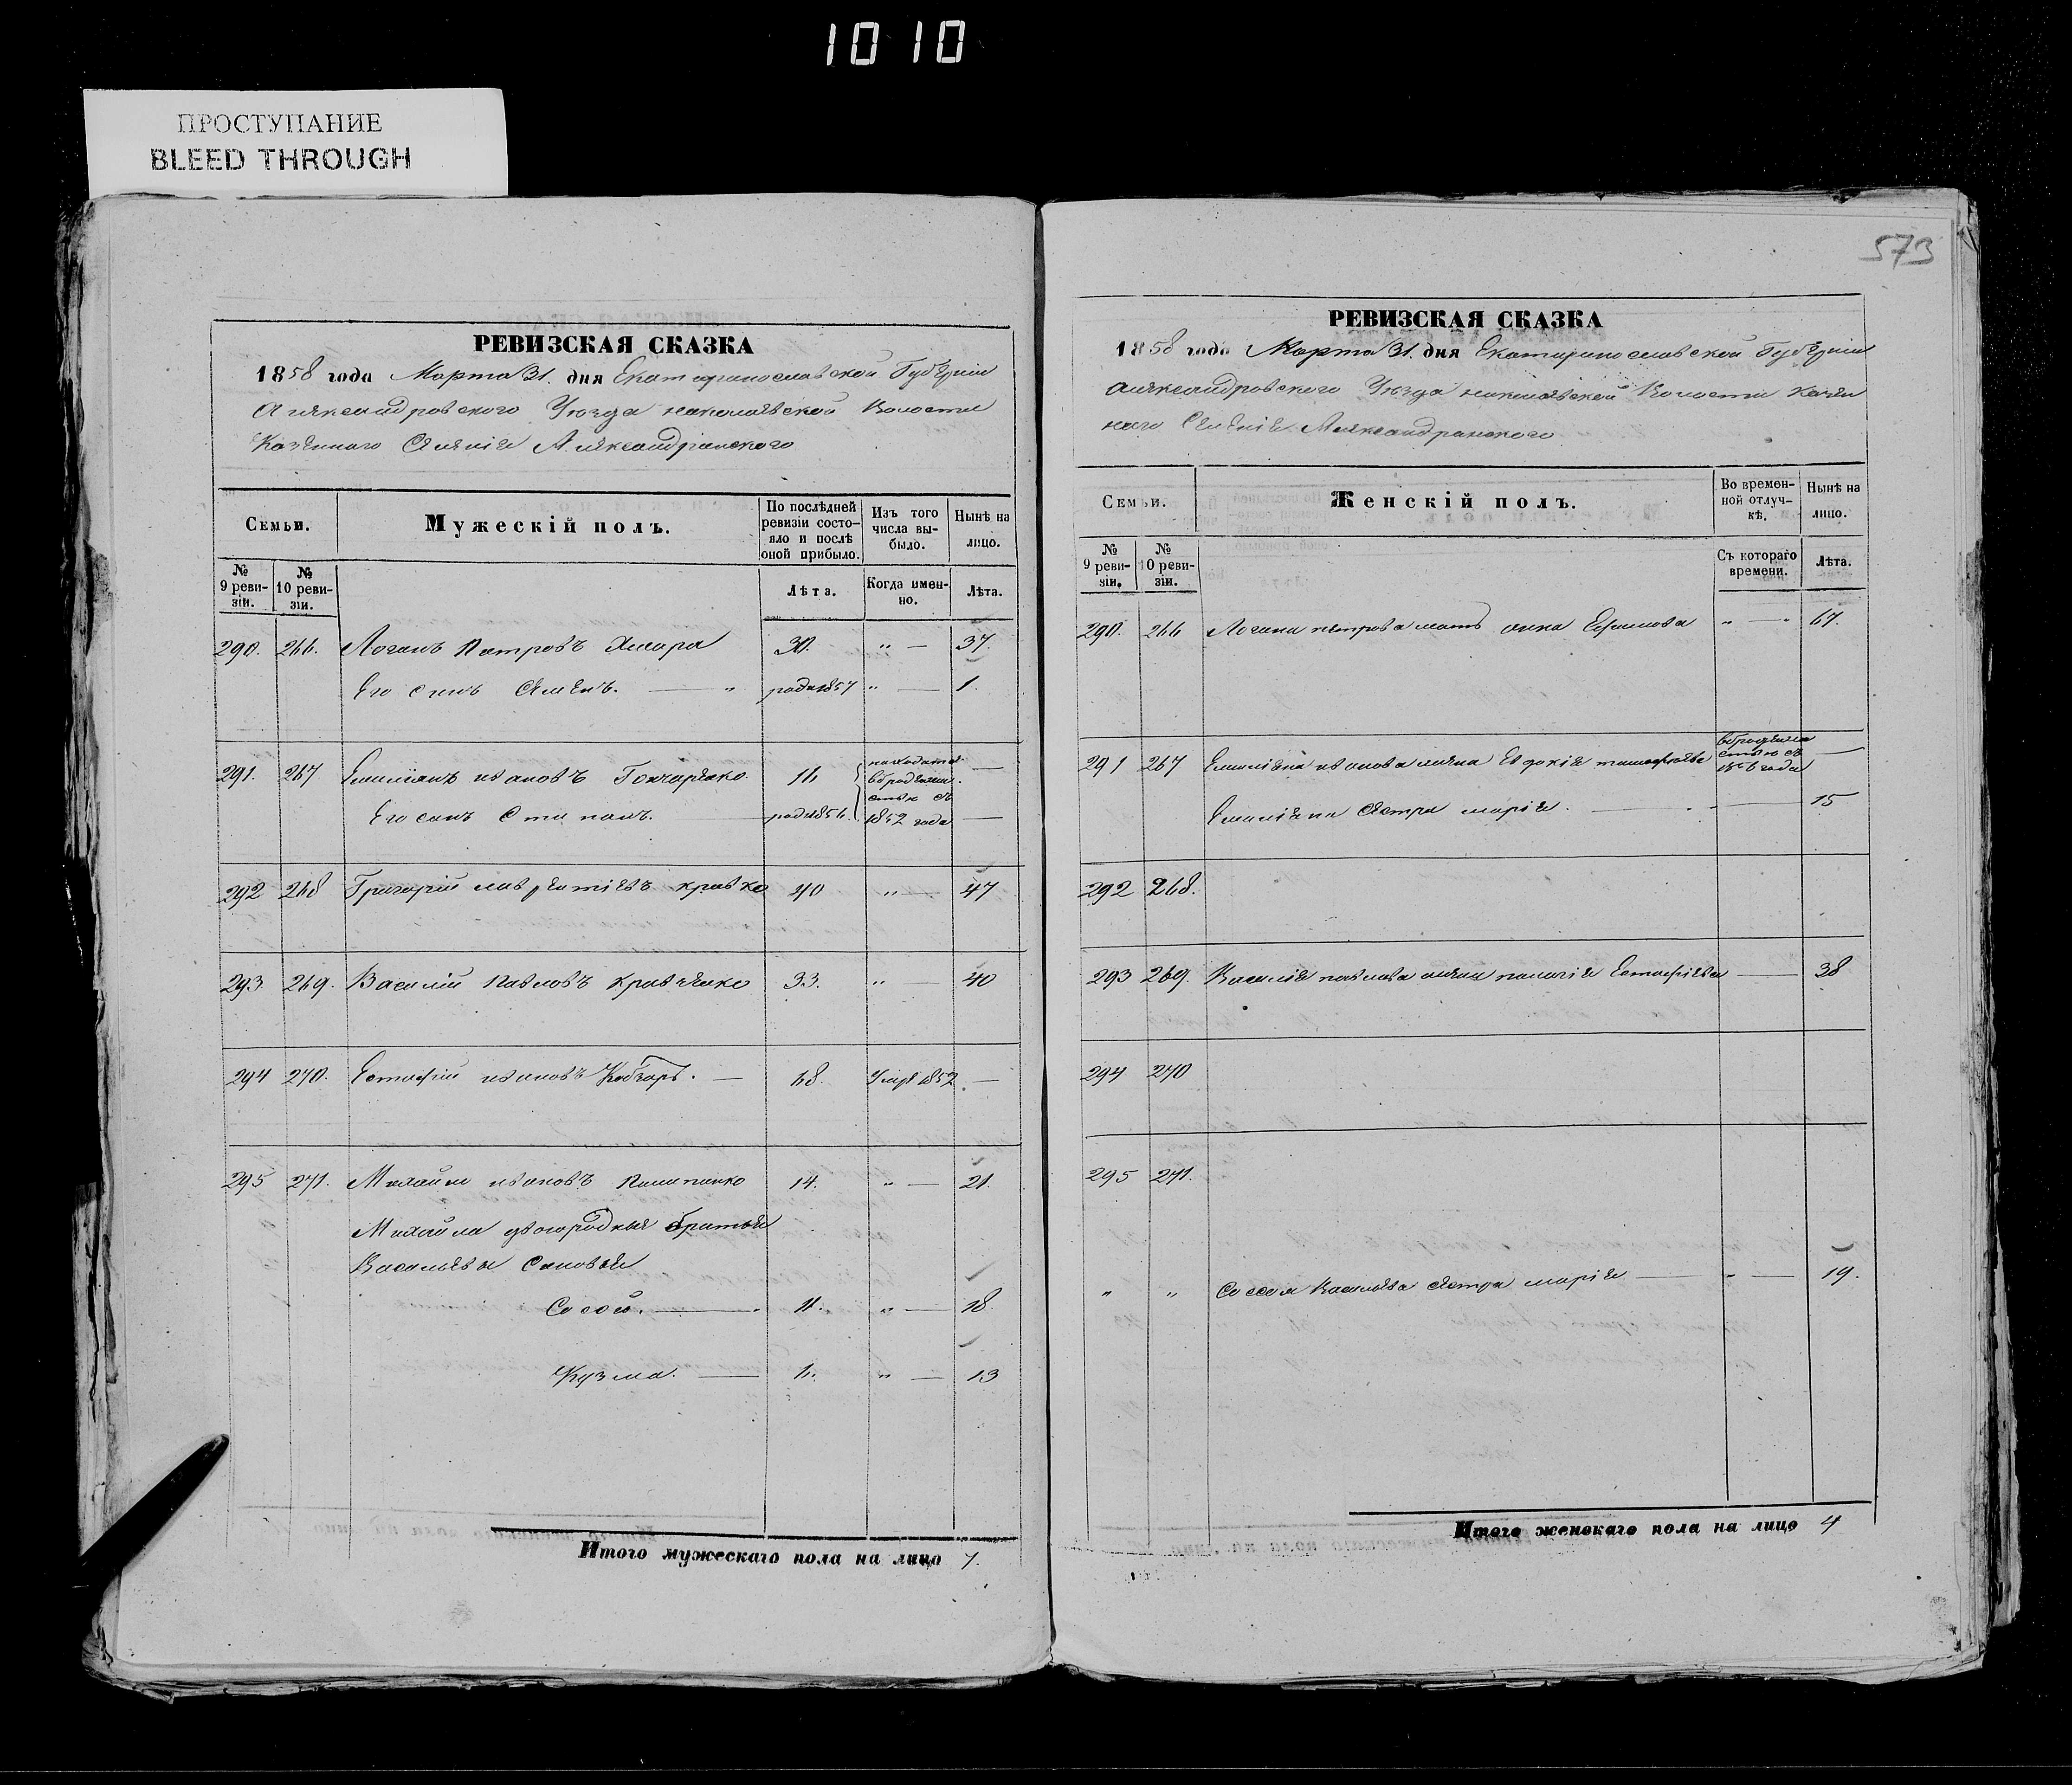 1010
ПРОСТУПАНИЕ
BLEED THROUGH
РЕВИЗСКАЯ СКАЗКА
1858 года Марта 31. дня Екатеринославской Губерніи
Александровского Уезда николаевской Волости
Казеннаго Селенія Александровского
Семьи.
Мужескій полъ.
По послѣдней ревизіи состояло и послѣ оной прибыло.
Изъ того числа выбыло.
Нынѣ на лицо.
№ 9 ревизіи.
№ 10 ревизіи.
Лѣта.
Когда именно.
Лѣта.
290. 266. Логинъ Петровъ 30. " — 37.
Его сынъ Семенъ. — " роди 1857 " — 1.
291. 267 Емиліянъ ивановъ Гончаренко 16 находится в бродяжестве съ 1852 года —
Его сынъ Степанъ. роди 185 —
292 268 Григорій лаврентіевъ кравко 40 " — 47
293. 269. Василій Павловъ Кравченко 33. " — 40
294 270. Естафій ивановъ Кобзарь. — 68. Умре 1852 —
295 271. Михайло ивановъ Пилипенко 14. " — 21.
Михайла двоюродные братья
Васильевы Сыновья
Сосой. — 11. " — 18
Кузма. — 6. " — 13
Итого мужескаго пола на лицо 7.
573
РЕВИЗСКАЯ СКАЗКА
1858 года Марта 31. дня Екатеринославской Губерніи
Александровского Уезда николаевской Волости Казен
наго Селенія Александровского
Семьи.
Женскій полъ.
Во временной отлучкѣ.
Нынѣ на лицо.
№ 9 ревизіи.
№ 10 ревизіи.
Съ котораго времени.
Лѣта.
290. 266 Логина петрова мать анна Ефимова " — " 67.
291 267 Емиліяна иванова жена Евдокія съ года —
Емиліяна Сестра марія. — 15
292 268.
293 269. Василія павлова жена Естафіева — 38
294 270
295 271.
" " Сосоя Васильева Сестра марія — " — 19.
Итого женскаго пола на лицо 4